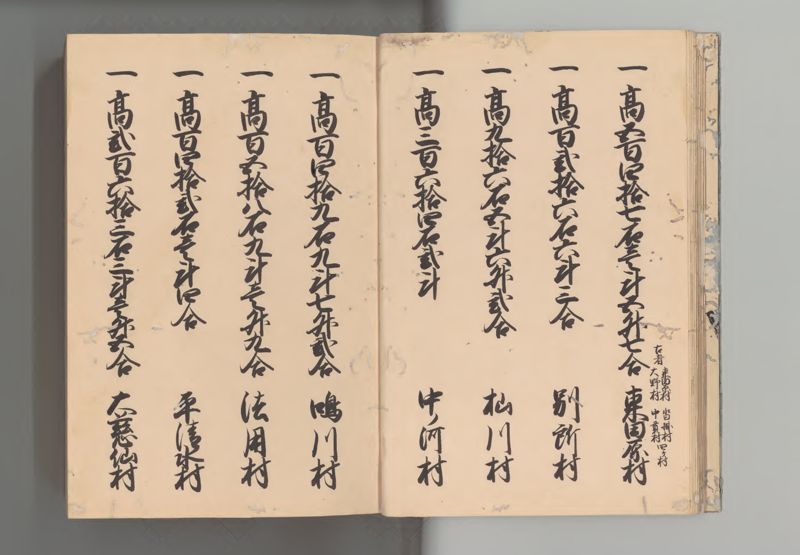 一高五百四拾七石壱斗五升七合 東田原村
古者 東田原村 大野村
中貫村 四ヶ村
一高百弐拾六石六斗三合 別所村
一高九拾六石五斗六升弐合 杣川村
一高三百六拾四石弐斗 中ノ河村
一高百四拾九石九斗七升弐合 鳴川村
一高百五拾八石九斗壱升九合 法用村
一高百四拾弐石壱斗四合 平清水村
一高弐百六拾三石三斗壱升五合 大慈仙村